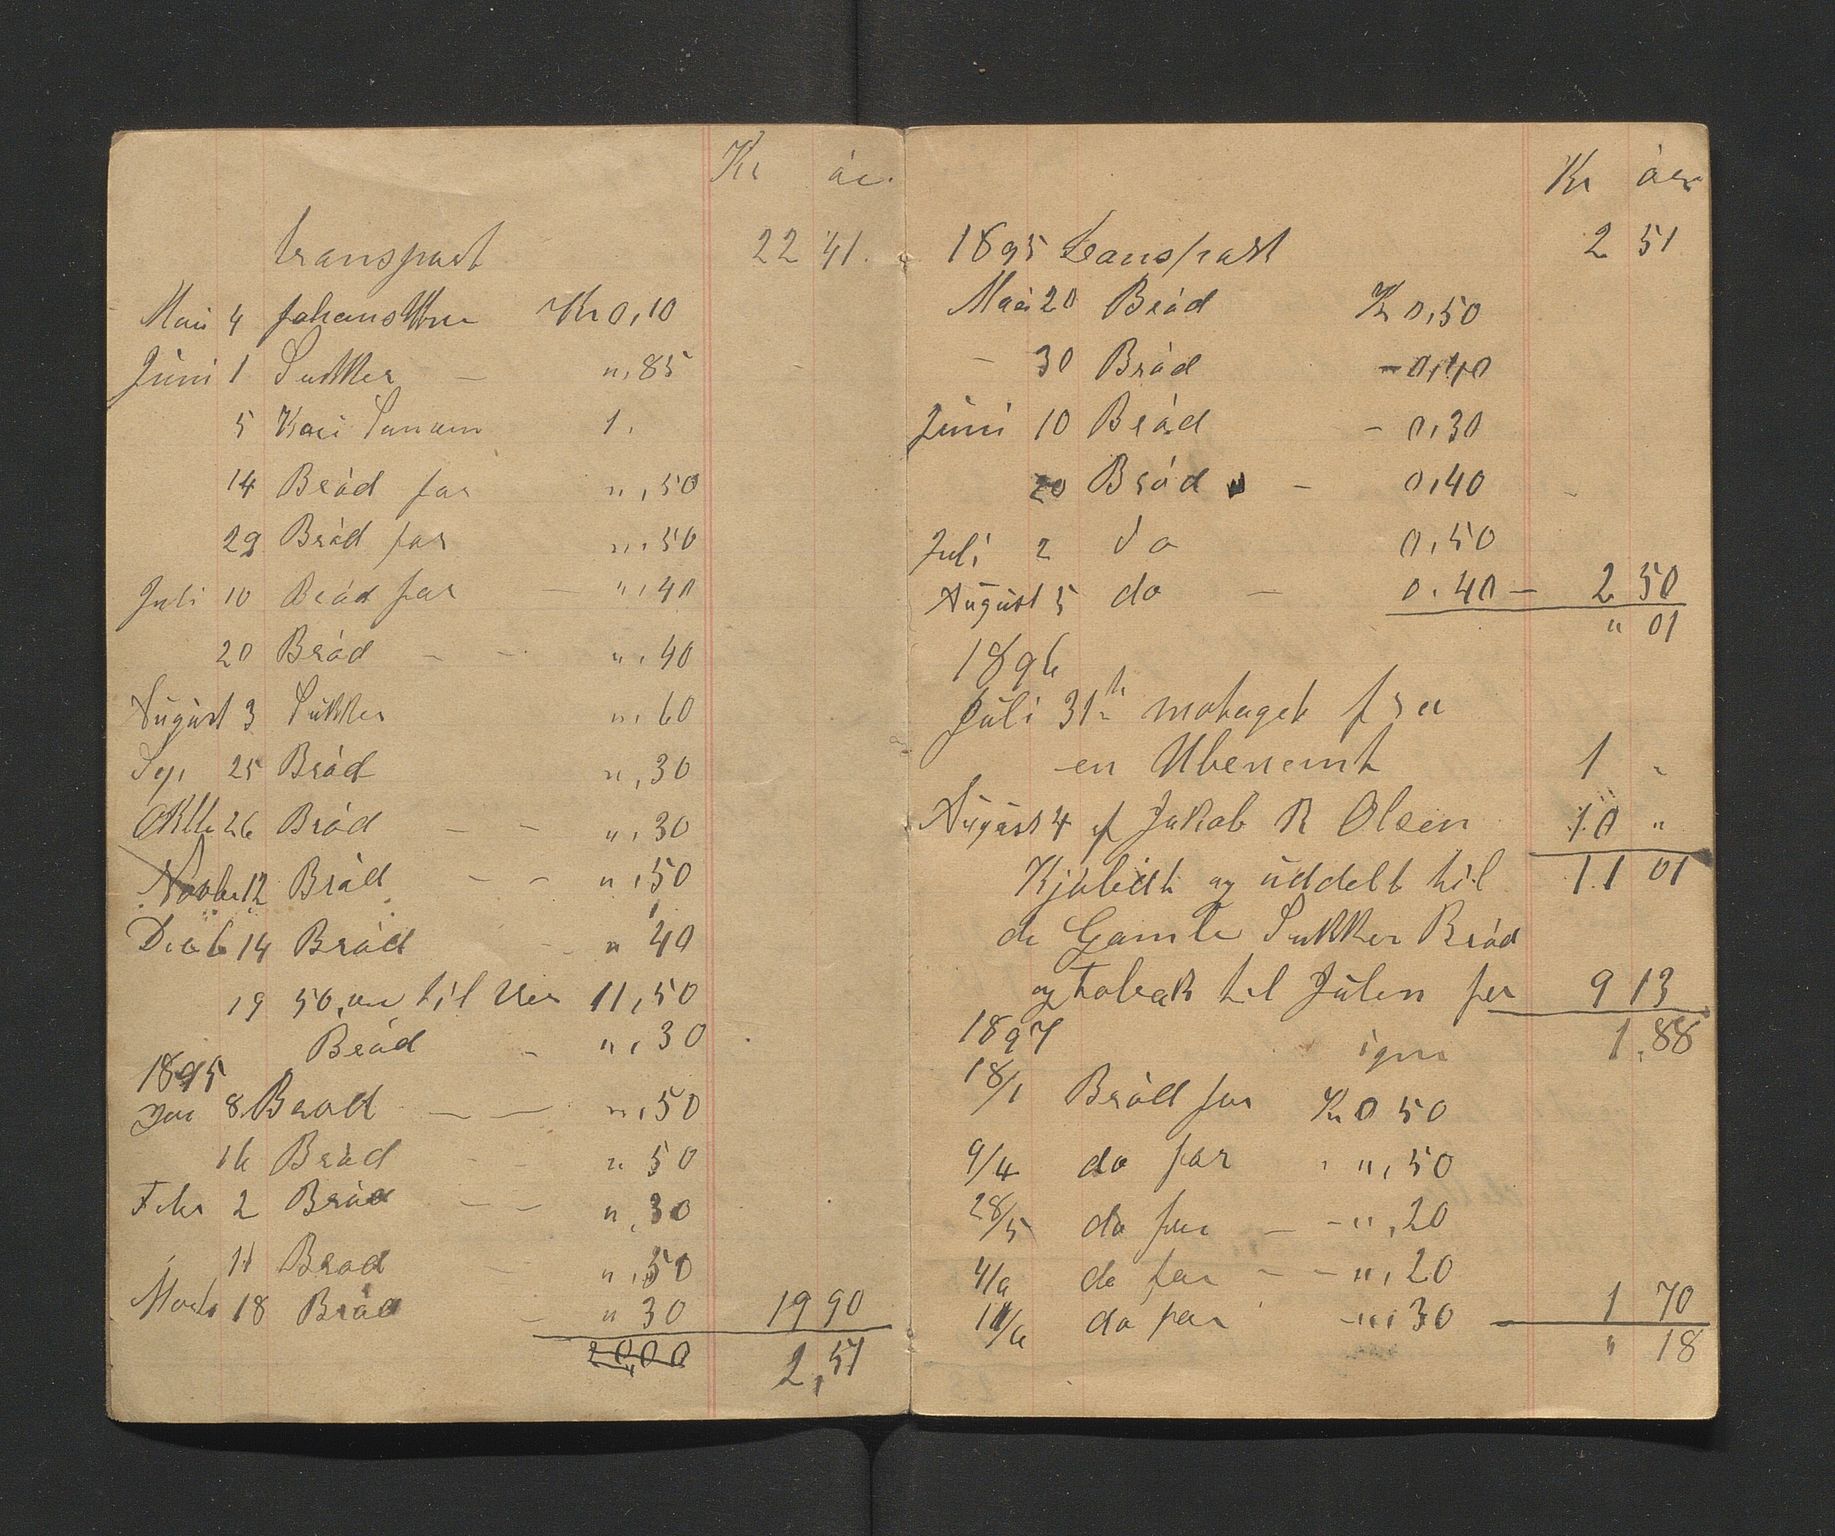 Kr ør.
transport 22 41.
Mai 4 Kr 0,10
Juni 1 Sukker — ",85
5 Kari 1.
14 Brød for ",50
29 Brød for ",50
Juli 10 Brød for — ",40
20 Brød — — ",40
August 3 Sukker ",60
Sep 25 Brød ",30
Oktb 26 Brød — — ",30
Novbr 12 Brød — — ",50
Decb 14 Brød - " 40
19 50, til 11,50
Brød - ",30
1895
Jan 8 Brød — — ",50
16 Brød - - " 50
Febr 2 Brød — — ",30
11 Brød - ",50
Marts 18 Brød - " 30 19 90
20,00 2,51
Kr ører
1895 transport 2 51
Mai 20 Brød Kr 0,50
— 30 Brød - 0,40
Juni 10 Brød - 0,30
20 Brød — 0,40
Juli 2 do 0,50
August 5 do — 0.40 — 2 50
" 01
1896
Juli 31te motaget fra
en Ubenemt 1 "
August 4 af Jakob R Olsen 10 "
Kjøbdt og uddelt til 11 01
de Gamle Sukker Brød
og Tobak til Julen for 9 13
1897 igen 1.88
18/1 Brød for Kr 0 50
9/4 do for ",50
28/5 do for — - ",20
4/9 do for - - ",20
do for - ", 30 — 1 70
" 18